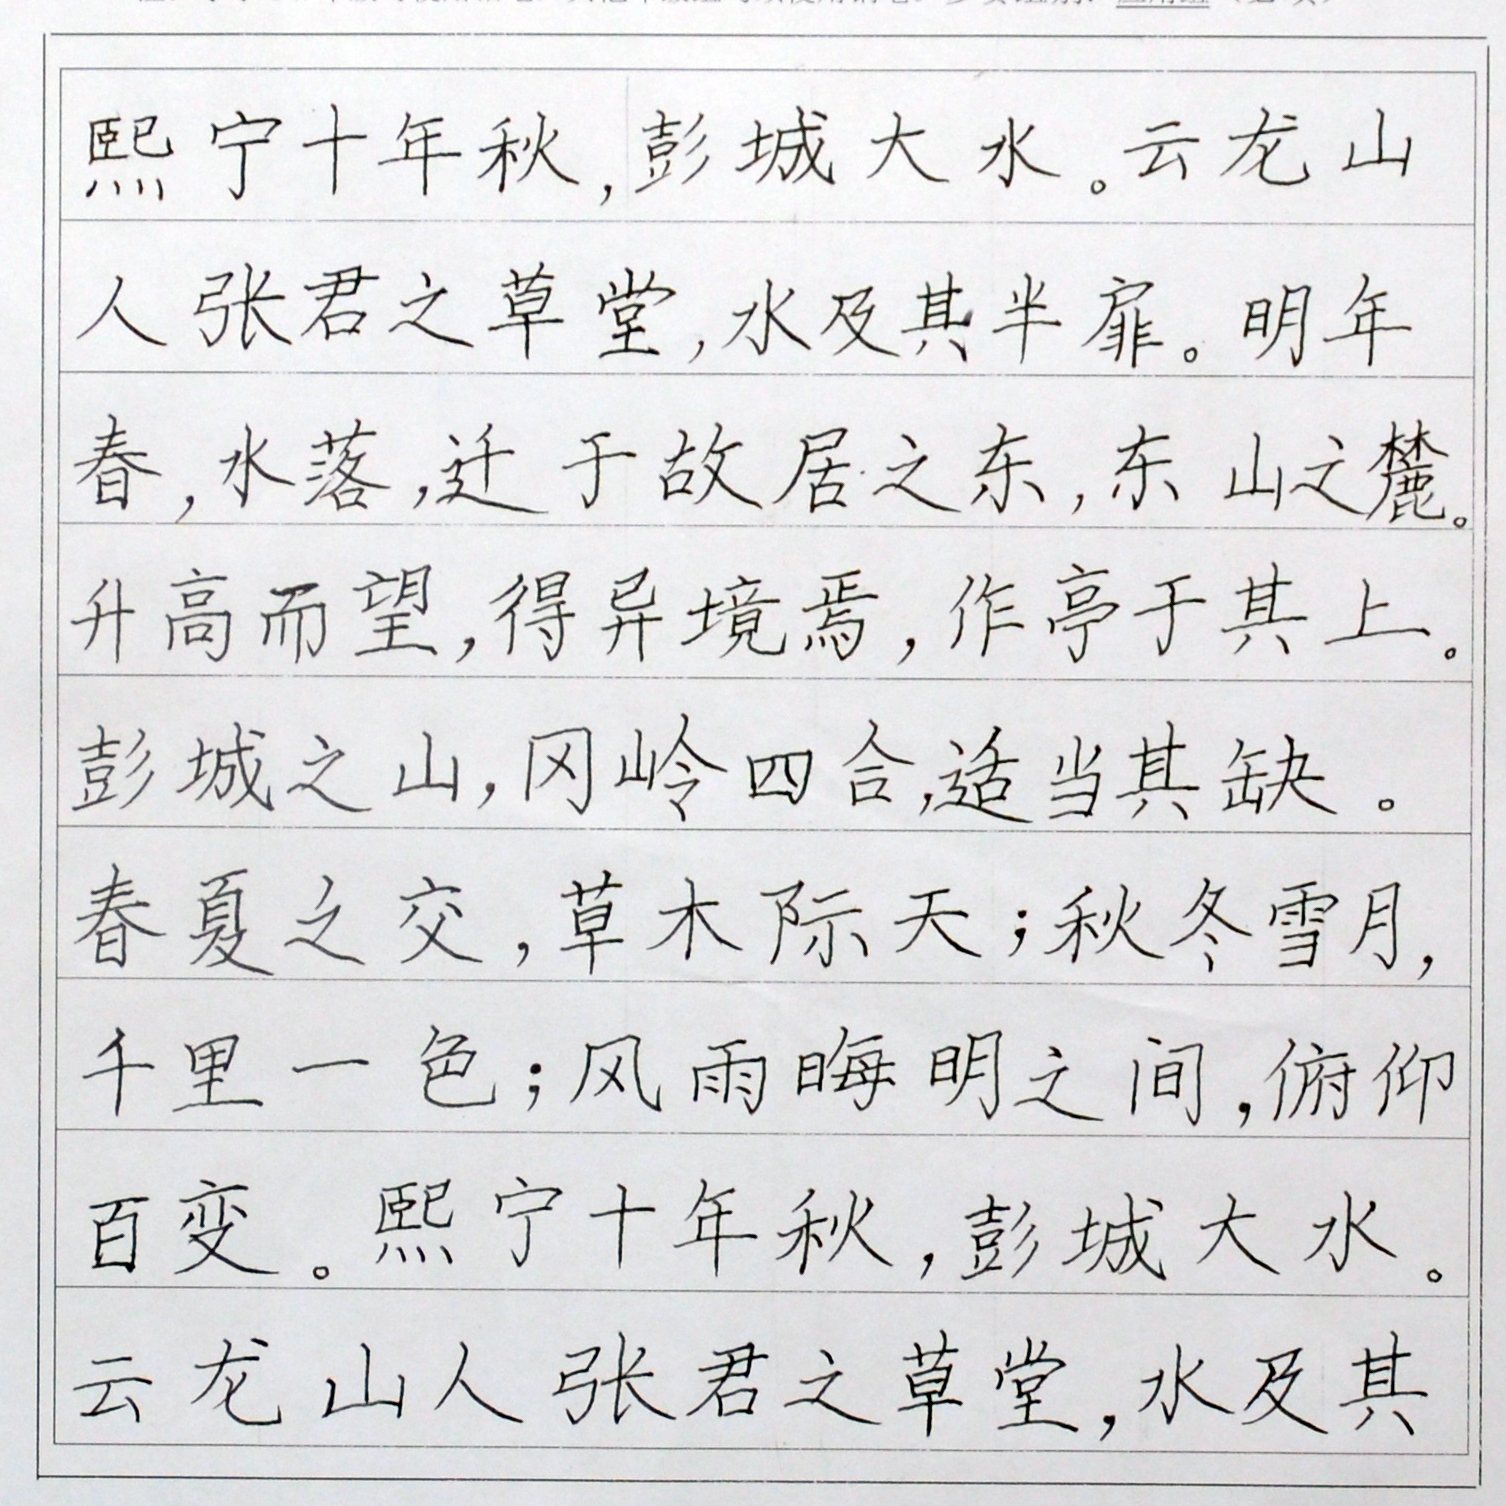 熙宁十年秋,彭城大水。云龙山
人张君之草堂,水及其半扉。明年
春,水落,迁于故居之东,东山之麓。
升高而望,得异境焉,作亭于其上。
彭城之山,冈岭四合,适当其缺。
春夏之交,草木际天;秋冬雪月,
千里一色;风雨晦明之间,俯仰
百变。熙宁十年秋,彭城大水。
云龙山人张君之草堂,水及其